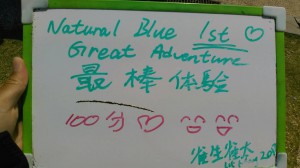 Natural Blue 1st
Great Adventure
最棒体验
100分